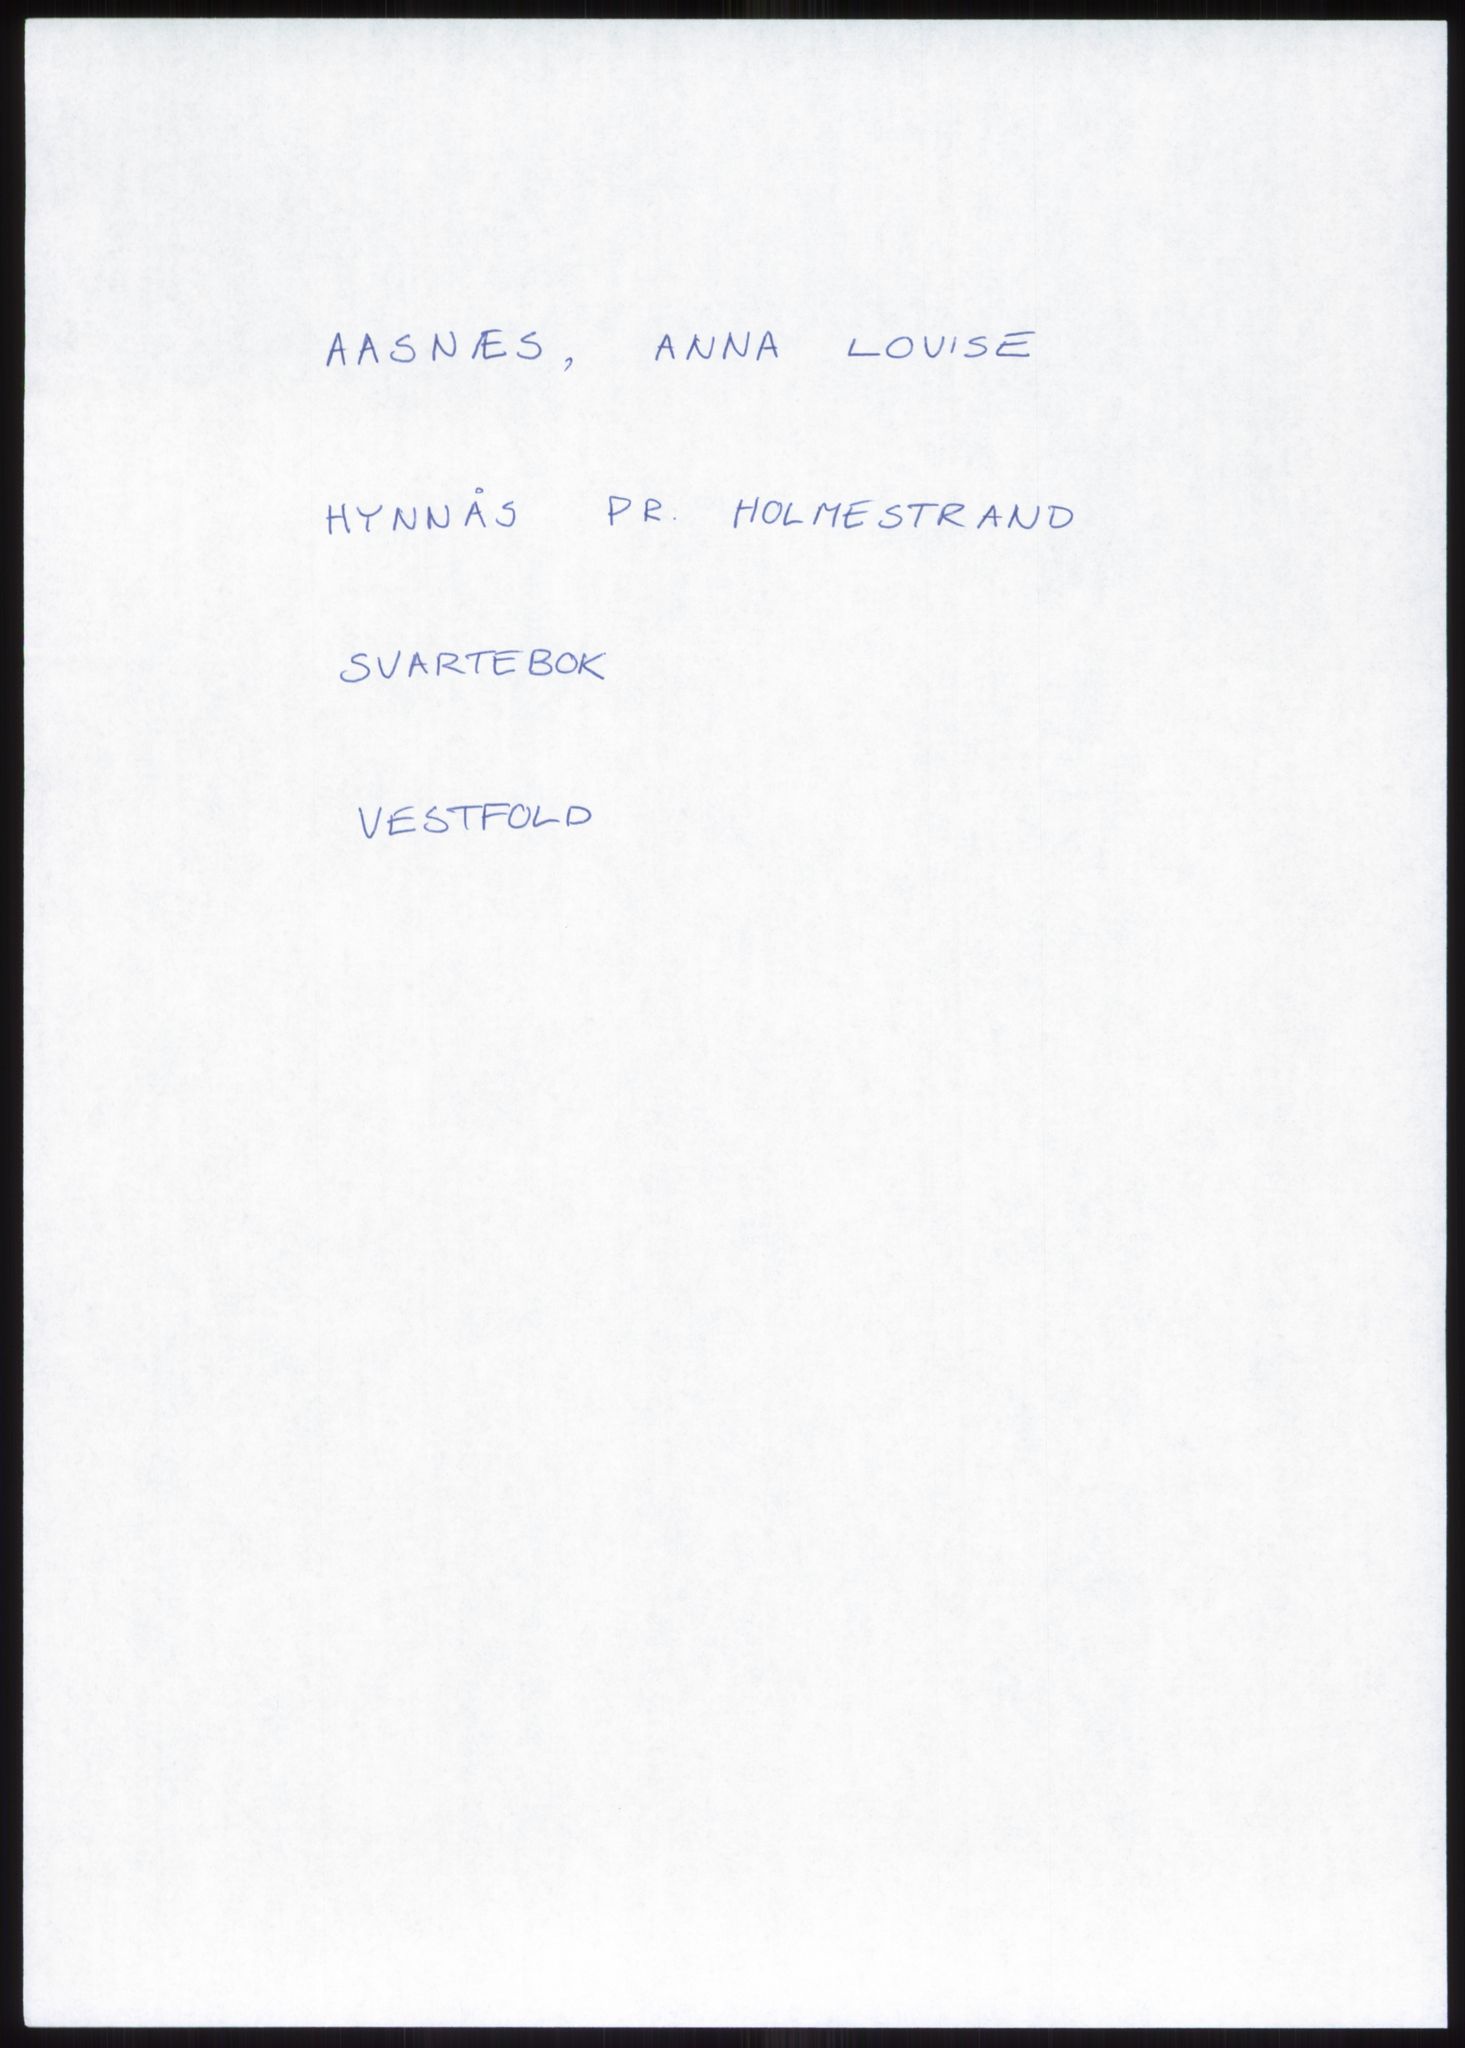 AASNÆS, ANNA LOUISE
HYNNÅS PR. HOLMESTRAND
SVARTEBOK
VESTFOLD